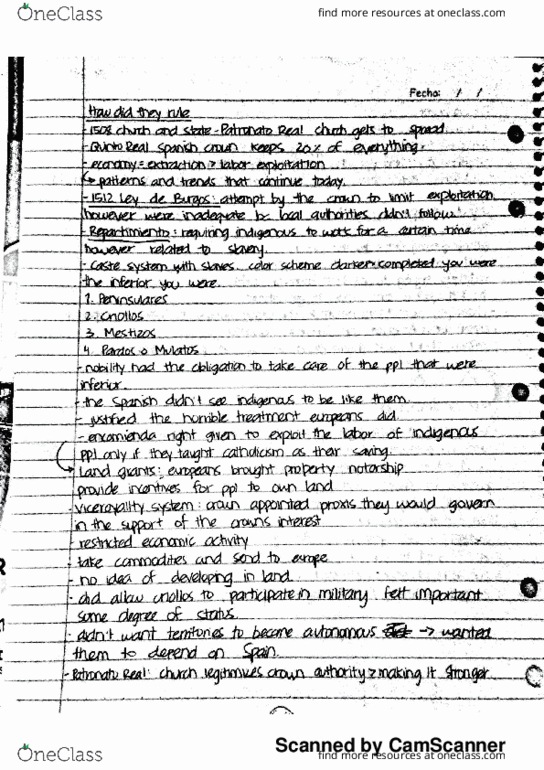 OneClass
find more resources at oneclass.com
Fecha: / /
How did they rule
-1508 church and state-Patronato Real church gets to spread
-Quinto Real spanish crown keeps 20% of everything.
-economy = extraction & labor exploitation
↳ patterns and trends that continue today.
-1512 Ley de Burgos: attempt by the crown to limit exploitation
however were inadequate bc local authorities didn't follow
-Repartimiento: requiring indigenous to work for a certain time
however related to slavery.
-caste system with slaves. color scheme darker completed you were
the inferior you were.
1. Peninsulares
2. Criollos
3. Mestizos
4. Pardos o Mulatos
-nobility had the obligation to take care of the ppl that were
inferior.
-the spanish didn't see indigenous to be like them
-justified the horrible treatment europeans did
-encomienda right given to exploit the labor of indigenous
ppl only if they taught catholicism as their saving.
Land grants: europeans brought property notorship
provide incentives for ppl to own land
-viceroyality system: crown appointed proxis they would govern
in the support of the crowns interest
-restricted economic activity
-take commodities and send to europe
-no idea of developing in land.
-did allow criollos to participate in military felt important
some degree of status.
-didn't want territories to become autonomous → wanted
them to depend on Spain.
-Patronato Real: church legitimizes crown authority & making it stronger
Scanned by CamScanner
OneClass
find more resources at oneclass.com